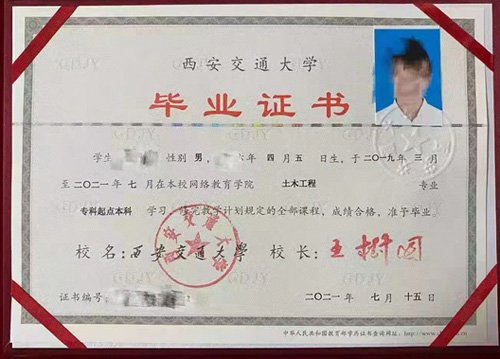 西安交通大学
毕业证书
学生 性别 男， 六年 四月 五日生，于二〇一九年 三月
至二〇二一年 七月在本校网络教育学院 土木工程 专业
专科起点本科 学习，修完教学计划规定的全部课程，成绩合格，准予毕业。
校 名：西安交通大學 校 长：王樹國
西安交通大学
证书编号： 二〇二一年 七月 十五日
中华人民共和国教育部学历证书查询网址：http://www.chsi.com.cn